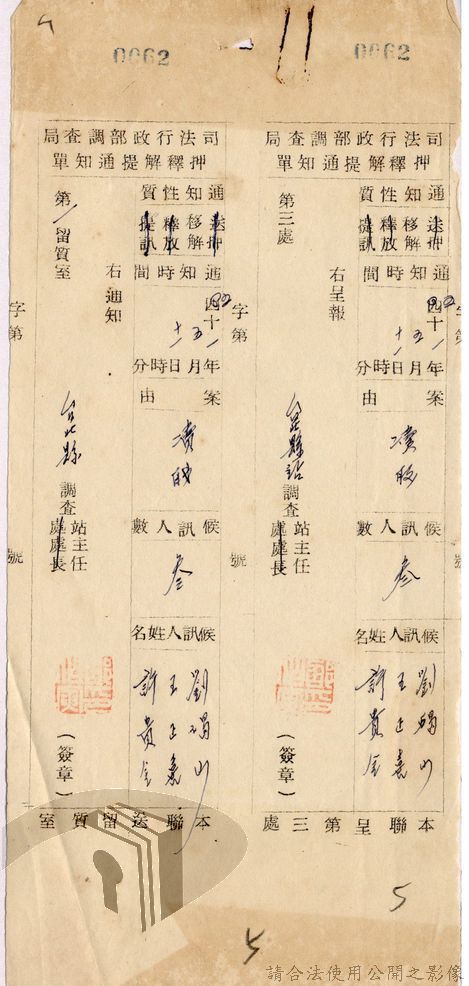 0062
司法行政部調查局
押釋解提通知單
通知性質
送押
移解
釋放
提訊
第三處
通知時間
右呈報
四十 年 五 月 十一 日 時 分
案由
台北縣站
調查站主任
處處長
候訊人數
叁
候訊人姓名
劉
王正
許貴全
(簽章)
本聯呈第三處
字第 號
5
0062
司法行政部調查局
押釋解提通知單
通知性質
送押
移解
釋放
提訊
第一留質室
通知時間
右通知
四十 年 五 月 十一 日 時 分
案由
台北縣
調查站主任
處處長
候訊人數
叁
候訊人姓名
劉
王正
許貴全
(簽章)
本聯送留質室
字第 號
5
請合法使用公開之影像